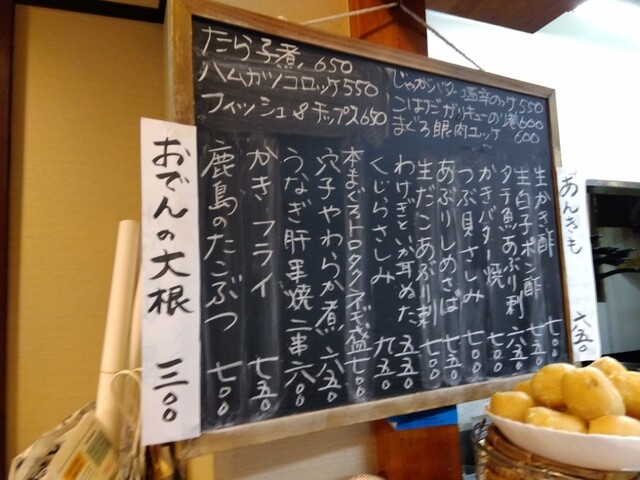 たら子煮 650
ハムカツコロッケ 550
フィッシュ&チップス 650
じゃがバター塩辛のっけ 550
こはだガリキューのり巻 600
まぐろ眼肉ユッケ 600
生かき酢 七〇〇
生白子ポン酢 七五〇
タチ魚あぶり刺 六五〇
かきバター焼 七〇〇
つぶ貝さしみ 七〇〇
あぶりしめさば 七五〇
生だこあぶり刺 七〇〇
わけぎといか耳ぬた 五五〇
くじらさしみ 九五〇
本まぐろトロタクネギ盛 七〇〇
穴子やわらか煮 六五〇
うなぎ肝串焼 二串 六〇〇
かきフライ 七五〇
鹿島のたこぶつ 七〇〇
あんきも 六五〇
おでんの大根 三〇〇